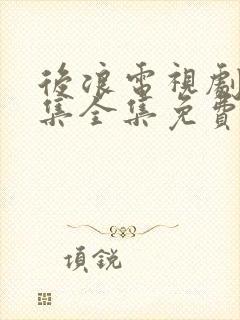 後浪電視劇
集全集免費
項銳